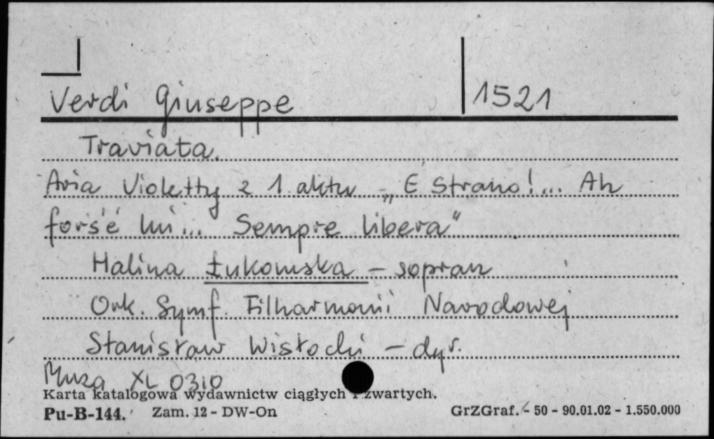 Verdi Giuseppe 1521
Traviata.
Aria Violetty z 1 aktu - „E strano!... Ah
fors'è lui... Sempre libera"
Halina Łukomska - sopran
Ork. Symf. Filharmonii Narodowej
Stanisław Wisłocki - dyr.
Muza XL 0310
Karta katalogowa wydawnictw ciągłych i zwartych.
Pu-B-144. Zam. 12 - DW-On GrZGraf. - 50 - 90.01.02 - 1.550.000